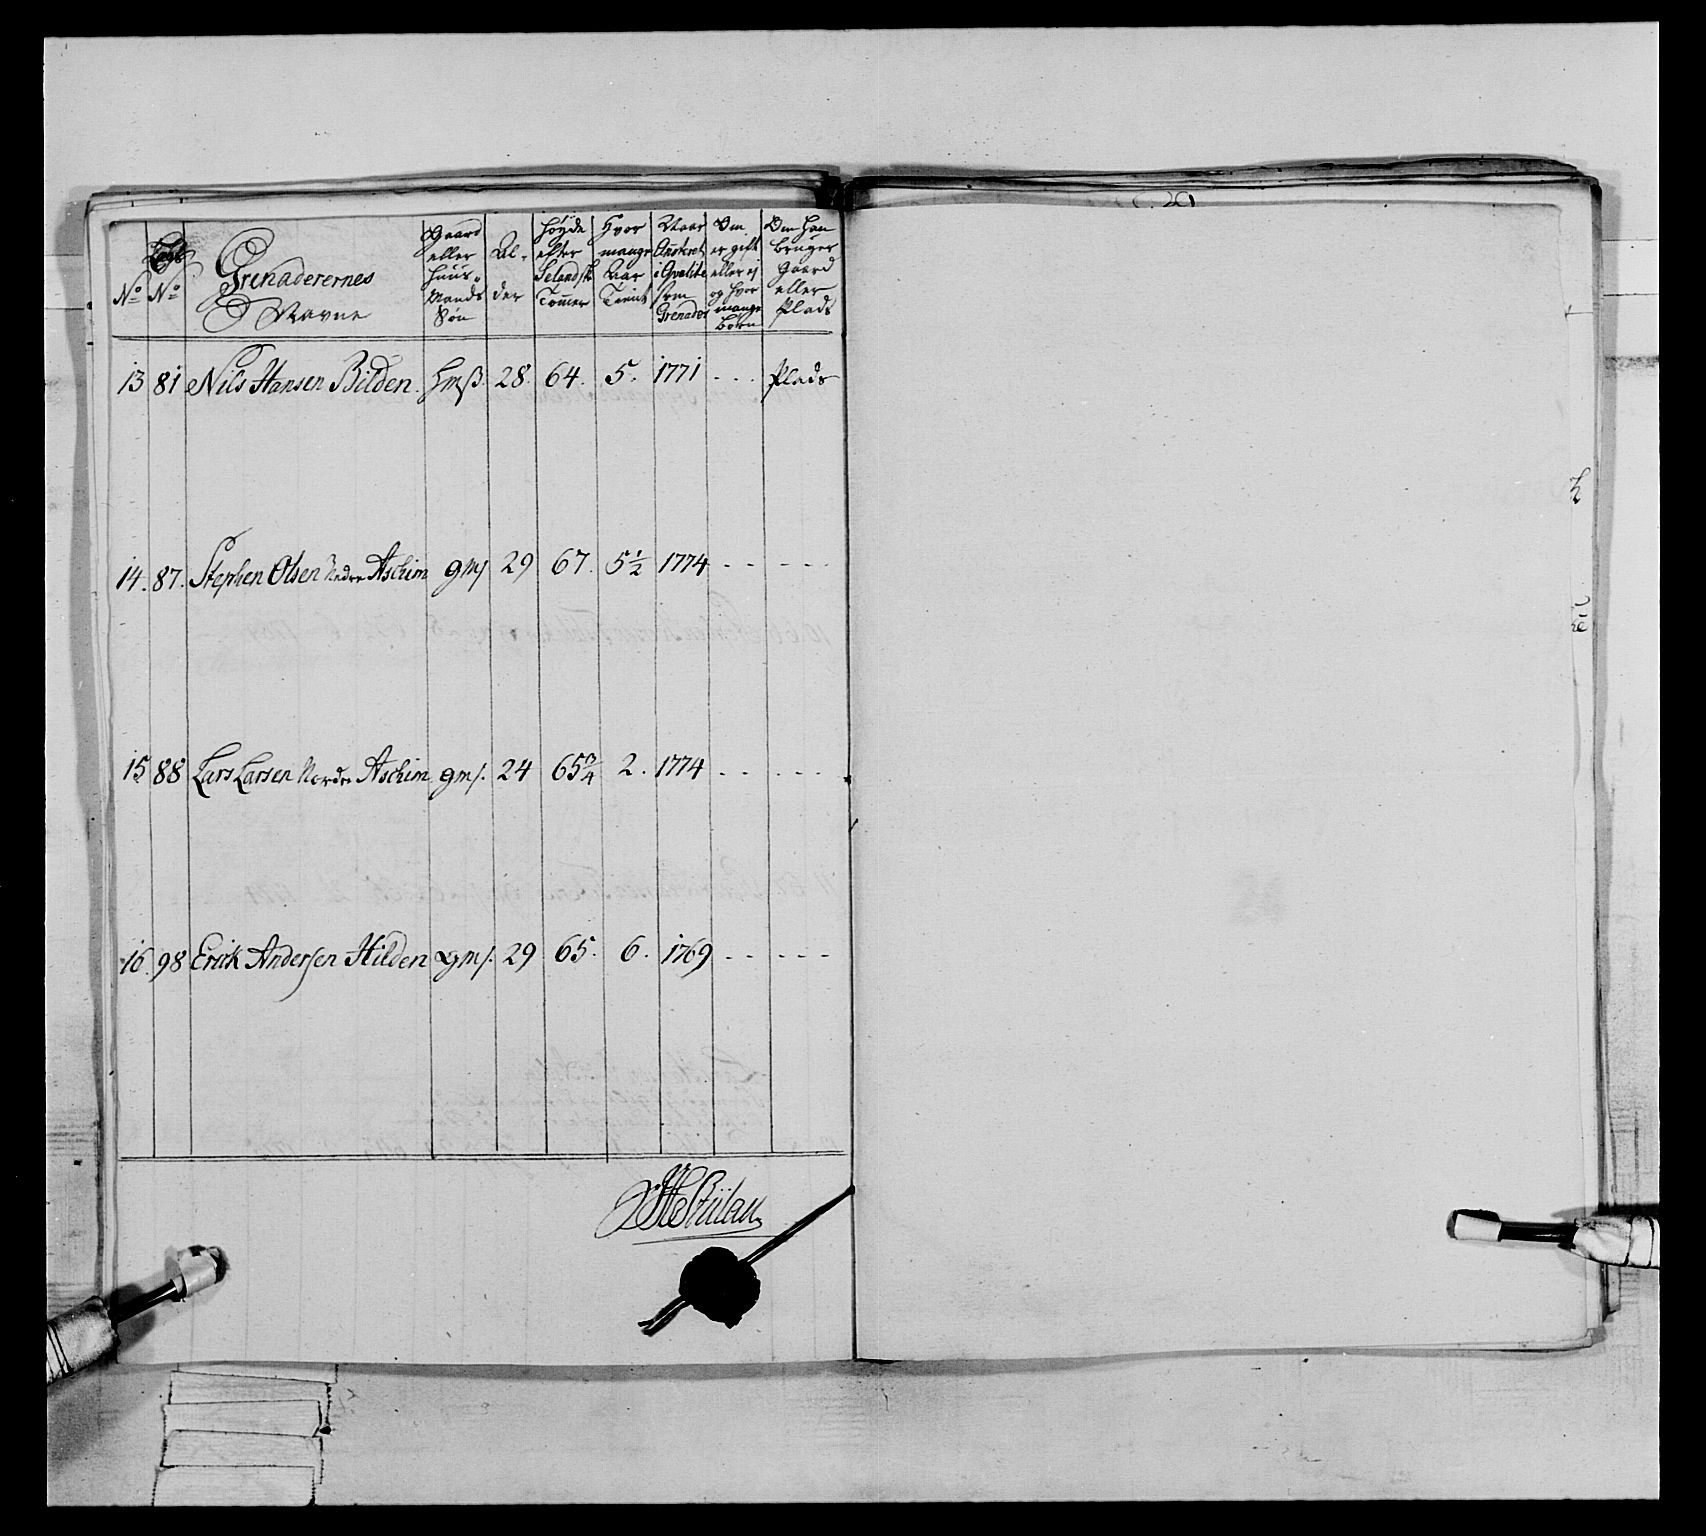 No | Lægs No | Grenaderernes Navne | Gaard eller Huus-Mands Søn | Al-der | Høyde efter Selandsk Tommer | Hvor mange Aar Tient | Naar Anskret i Qvalite som Grenader | Om er gift eller ej og hvor mange børn | Om han bruger Gaard eller Plads
13 | 81 | Nils Hansen Bilden. | Hmß. | 28. | 64. | 5. | 1771 | . . . | Plads
14. | 87. | Stephen Olsen Nedre Aschim | gms | 29 | 67. | 5 1/2 | 1774 | - - | - - -
15 | 88 | Lars Larsen Nordre Aschim | gms. | 24 | 65 3/4 | 2. | 1774 | - - | - - -
16. | 98 | Erick Andersen Hilden | gms. | 29 | 65. | 6. | 1769 | - - | - - - -